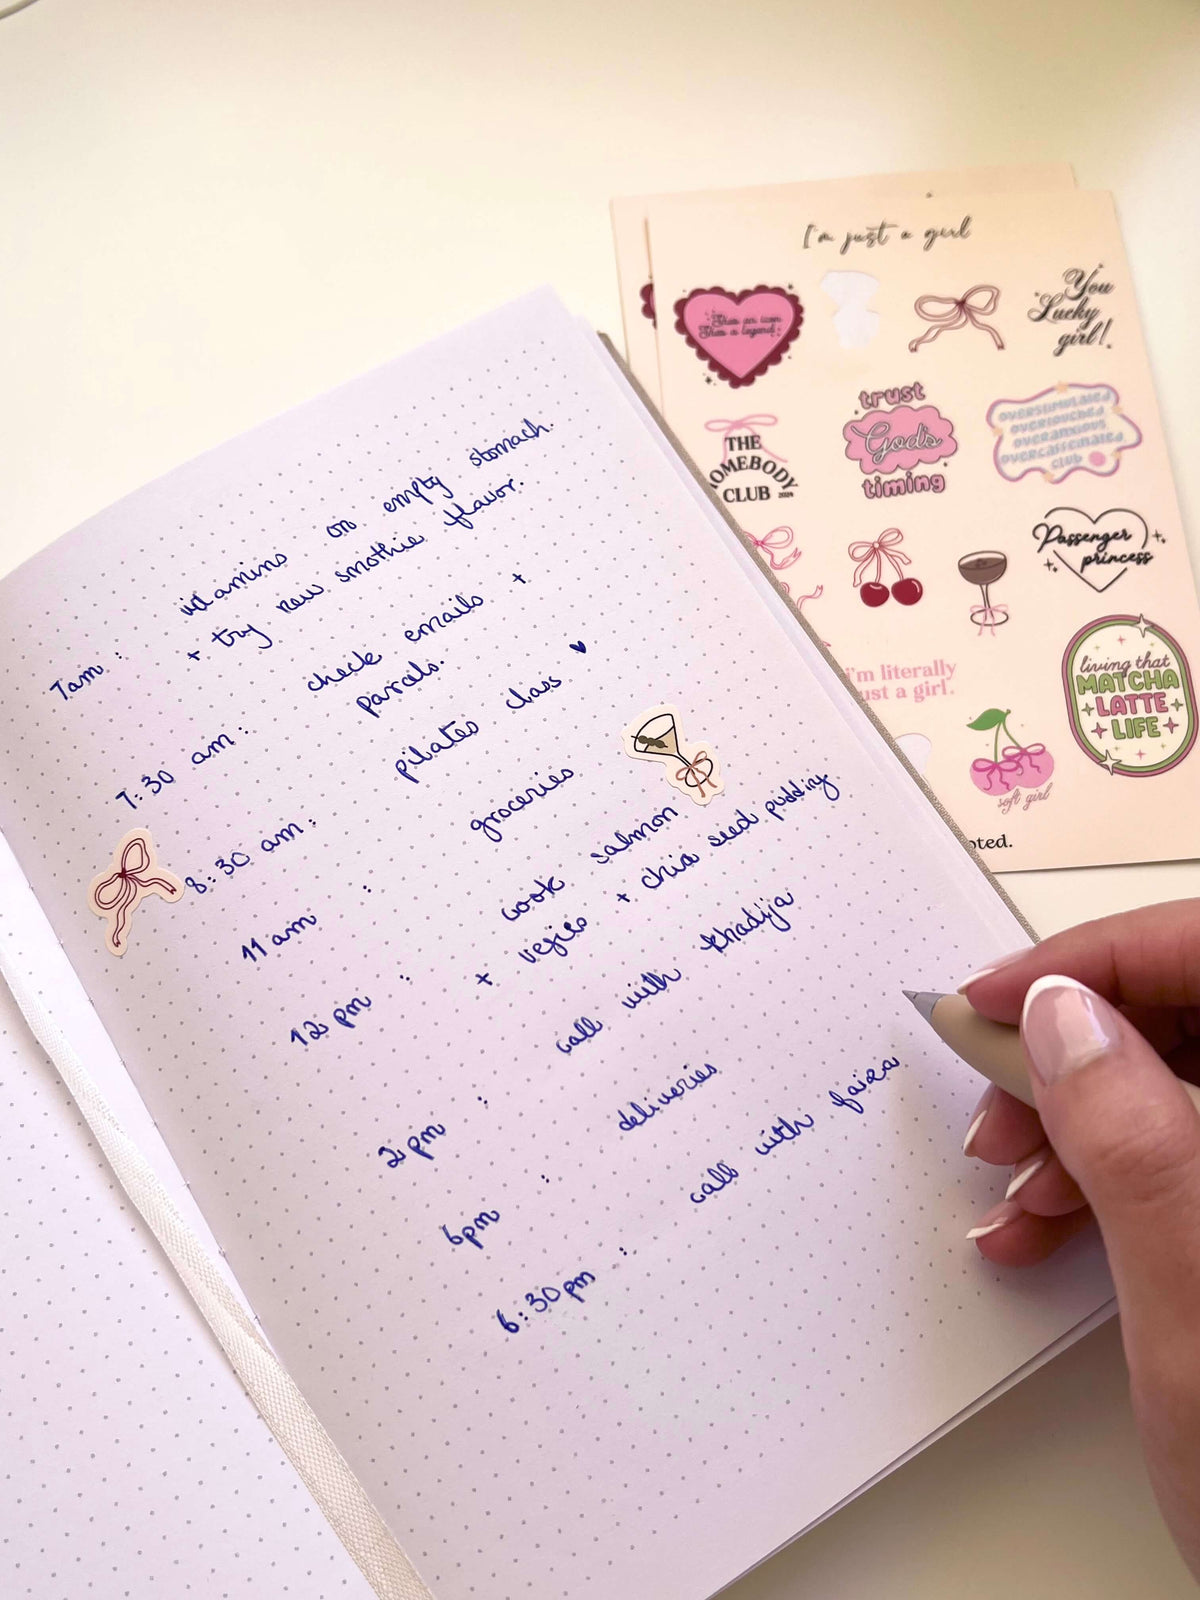 7am : vitamins on empty stomach.
+ try new smothie flavor.
7:30 am: check emails +
parcels.
8:30 am: pilates class ♥
11 am : groceries
12 pm : cook salmon
+ vegies + chia seed pudding
2pm : call with khadija
6pm : deliveries
6:30pm : call with faiza
I'm just a girl
She's an icon
She's a legend
You
Lucky
girl!
THE
HOMEBODY
CLUB 2024
trust
God's
timing
OVERSTIMULATED
OVERTOUCHED
OVERANXIOUS
OVERCAFFEINATED
CLUB
Passenger
princess
i'm literally
just a girl.
living that
MATCHA
LATTE
LIFE
soft girl